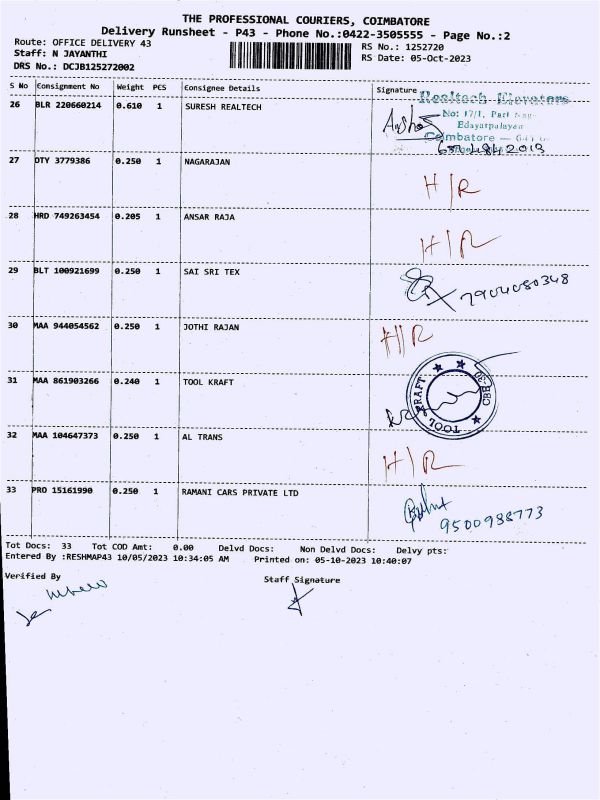 THE PROFESSIONAL COURIERS, COIMBATORE
Delivery Runsheet - P43 - Phone No.:0422-3505555 - Page No.:2
Route: OFFICE DELIVERY 43
Staff: N JAYANTHI
DRS No.: DCJB125272002
RS No.: 1252720
RS Date: 05-Oct-2023
S No Consignment No Weight PCS Consignee Details Signature
26 BLR 220660214 0.610 1 SURESH REALTECH
Realtech Elevators
No: 17/1,
Edayarpalayam
Coimbatore
27 DTY 3779386 0.250 1 NAGARAJAN H/R
28 HRD 749263454 0.205 1 ANSAR RAJA H/R
29 BLT 100921699 0.250 1 SAI SRI TEX 7904080348
30 MAA 944054562 0.250 1 JOTHI RAJAN H/R
31 MAA 861903266 0.240 1 TOOL KRAFT
TOOL KRAFT
32 MAA 104647373 0.250 1 AL TRANS H/R
33 PRO 15161990 0.250 1 RAMANI CARS PRIVATE LTD 9500988773
Tot Docs: 33 Tot COD Amt: 0.00 Delvd Docs: Non Delvd Docs: Delvy pts:
Entered By :RESHMAP43 10/05/2023 10:34:05 AM Printed on: 05-10-2023 10:40:07
Verified By Staff Signature